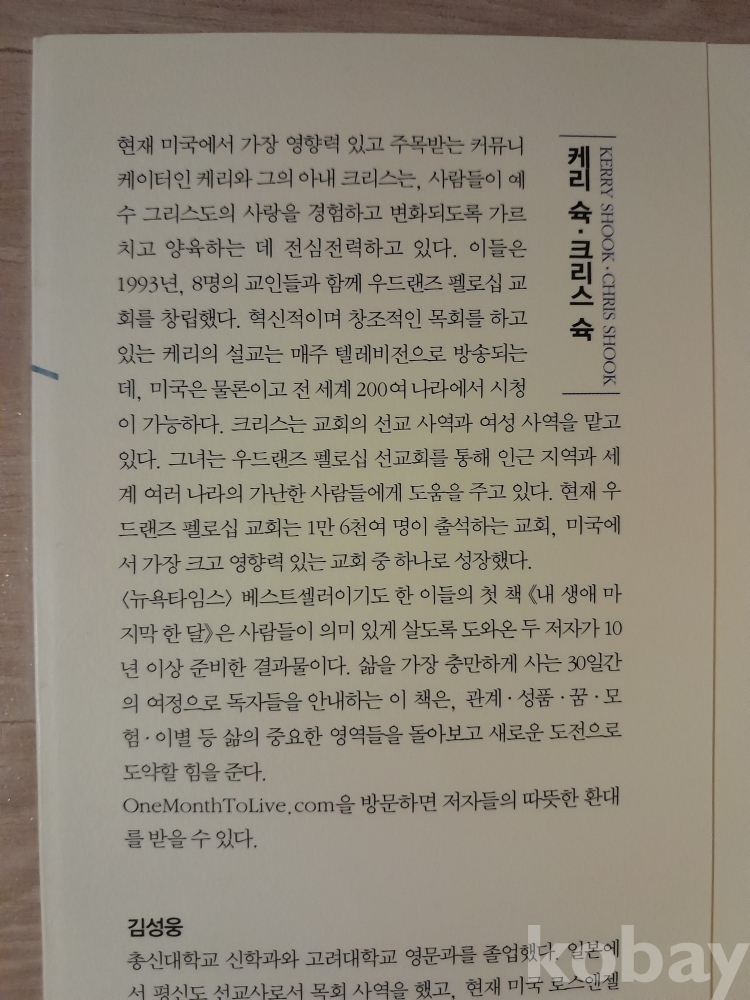 케리 슉·크리스 슉
KERRY SHOOK·CHRIS SHOOK
현재 미국에서 가장 영향력 있고 주목받는 커뮤니
케이터인 케리와 그의 아내 크리스는, 사람들이 예
수 그리스도의 사랑을 경험하고 변화되도록 가르
치고 양육하는 데 전심전력하고 있다. 이들은
1993년, 8명의 교인들과 함께 우드랜즈 펠로십 교
회를 창립했다. 혁신적이며 창조적인 목회를 하고
있는 케리의 설교는 매주 텔레비전으로 방송되는
데, 미국은 물론이고 전 세계 200여 나라에서 시청
이 가능하다. 크리스는 교회의 선교 사역과 여성 사역을 맡고
있다. 그녀는 우드랜즈 펠로십 선교회를 통해 인근 지역과 세
계 여러 나라의 가난한 사람들에게 도움을 주고 있다. 현재 우
드랜즈 펠로십 교회는 1만 6천여 명이 출석하는 교회, 미국에
서 가장 크고 영향력 있는 교회 중 하나로 성장했다.
〈뉴욕타임스〉 베스트셀러이기도 한 이들의 첫 책 《내 생애 마
지막 한 달》은 사람들이 의미 있게 살도록 도와온 두 저자가 10
년 이상 준비한 결과물이다. 삶을 가장 충만하게 사는 30일간
의 여정으로 독자들을 안내하는 이 책은, 관계·성품·꿈·모
험·이별 등 삶의 중요한 영역들을 돌아보고 새로운 도전으로
도약할 힘을 준다.
OneMonthToLive.com을 방문하면 저자들의 따뜻한 환대
를 받을 수 있다.
김성웅
총신대학교 신학과와 고려대학교 영문과를 졸업했다. 일본에
서 평신도 선교사로서 목회 사역을 했고, 현재 미국 로스엔젤
kobay